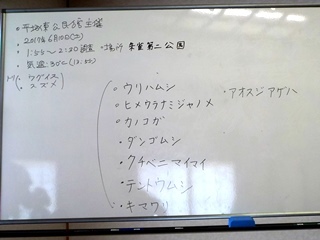 ・平塚市公民館主催
・2017年6月10日(土)
・1:00〜2:30調査 ・場所 東室第二公園
・気温:30℃(13:00)
トリ(・ウグイス
・スズメ
○ウリハムシ
○ヒメウラナミジャノメ
○カノコガ
・ダンゴムシ
・クチベニマイマイ
・テントウムシ
・キマワリ
・アオスジアゲハ